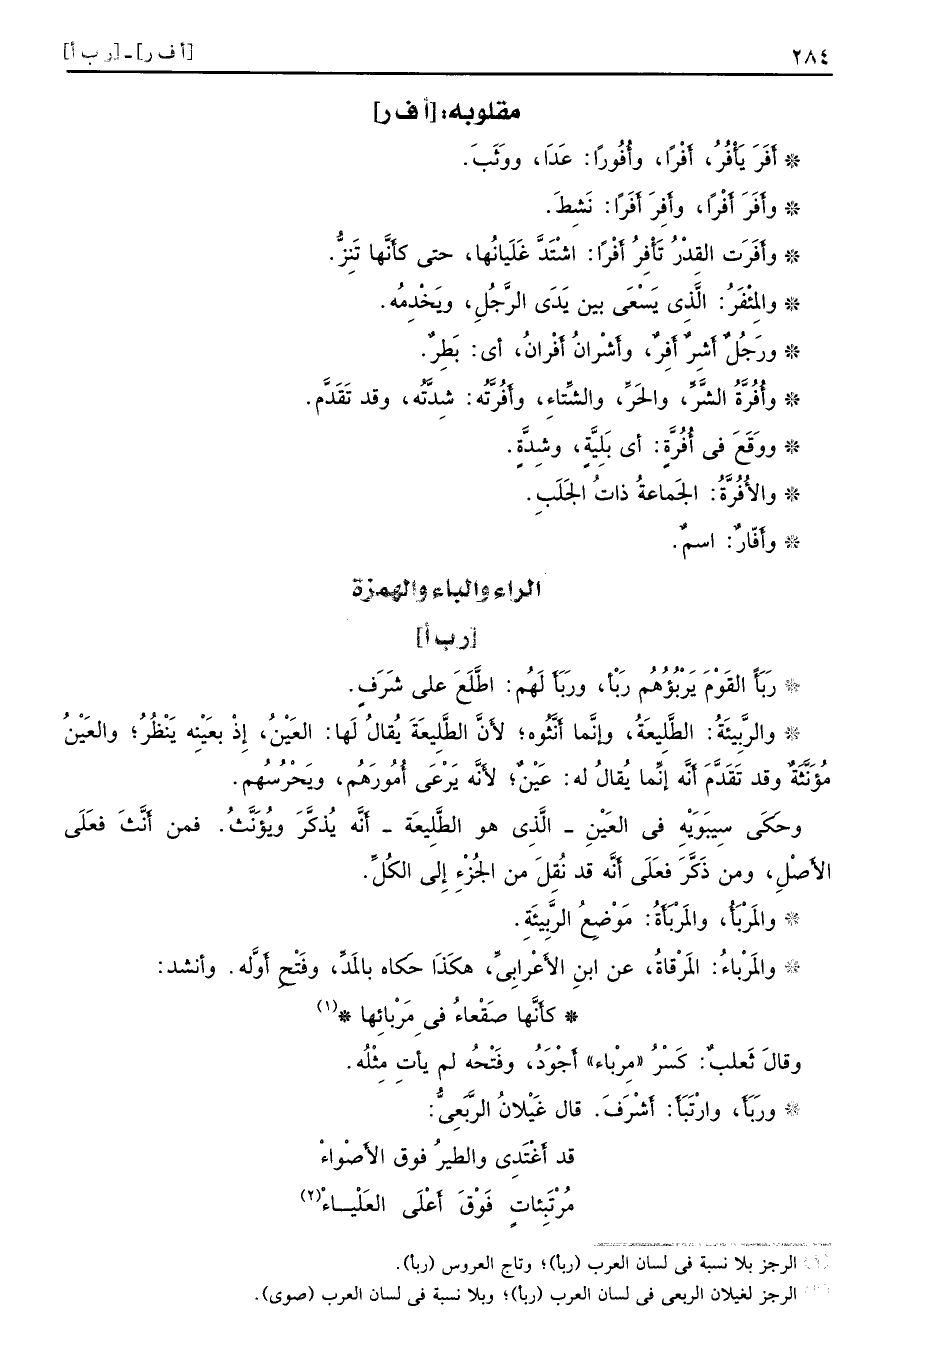 ٢٨٤
[أ ف ر] ـ [ر ب أ]
مقلوبه: [أ ف ر]
* أَفَرَ يَأْفُرُ، أَفْرًا، وأُفُورًا: عَدَا، ووَثَبَ.
* وأَفَرَ أَفْرًا، وأَفِرَ أَفَرًا: نَشِطَ.
* وأَفَرَت القِدْرُ تَأْفِرُ أَفْرًا: اشْتَدَّ غَلَيَانُها، حتى كأنَّها تَنِزُّ.
* والمِئْفَرُ: الَّذِى يَسْعَى بين يَدَى الرَّجُلِ، ويَخْدِمُه.
* ورَجُلٌ أَشِرٌ أَفِرٌ، وأَشْرانُ أَفْرانُ، أى: بَطِرٌ.
* وأُفُرَّةُ الشَّرِّ، والحَرِّ، والشِّتاءِ، وأَفُرَّتُه: شِدَّتُه، وقد تَقَدَّم.
* ووَقَعَ فى أُفُرَّةٍ: أى بَلِيَّةٍ، وشِدَّةٍ.
* والأُفُرَّةُ: الجَماعةُ ذاتُ الجَلَبِ.
* وأَفّارٌ: اسمٌ.
الراء والباء والهمزة
[ر ب أ]
* رَبَأَ القَوْمَ يَرْبُؤُهُم رَبْأ، ورَبَأَ لَهُم: اطَّلَعَ على شَرَفٍ.
* والرَّبِيئَةُ: الطَّلِيعَةُ، وإنَّما أَنَّثُوه؛ لأنَّ الطَّلِيعَةَ يُقالُ لَها: العَيْنُ، إِذْ بعَيْنِه يَنْظُرُ؛ والعَيْنُ
مُؤَنَّثَةٌ وقد تَقَدَّمَ أنَّه إنَّما يُقالُ له: عَيْنٌ؛ لأنَّه يَرْعَى أُمُورَهُم، ويَحْرُسُهم.
وحَكَى سِيبَوَيْهِ فى العَيْنِ ـ الَّذِى هو الطَّلِيعَة ـ أنَّه يُذكَّرَ ويُؤَنَّثُ. فمن أَنَّثَ فعَلَى
الأصْلِ، ومن ذَكَّرَ فعَلَى أنَّه قد نُقِلَ من الجُزْءِ إلى الكُلِّ.
* والمَرْبَأُ، والمَرْبَأَةُ: مَوْضِعُ الرَّبِيئَةِ.
* والمَرْباءُ: المَرْقاةُ، عن ابنِ الأعْرابِىِّ، هكَذَا حَكاه بالمَدِّ، وفَتْحِ أَوَّله. وأنشد:
* كأنَّها صَقْعاءُ فى مَرْبائِها *(١)
وقالَ ثَعلبٌ: كَسْرُ «مِرْباء» أَجْوَدُ، وفَتْحُه لم يأتِ مِثْلُه.
* ورَبَأَ، وارْتَبَأَ: أَشْرَفَ. قال غَيْلانُ الرَّبَعِىُّ:
قد أَغْتَدِى والطيرُ فوق الأصْواءْ
مُرْتَبِئاتٍ فَوْقَ أَعْلَى العَلْيـاءْ(٢)
(١) الرجز بلا نسبة فى لسان العرب (ربأ)؛ وتاج العروس (ربأ).
(٢) الرجز لغيلان الربعى فى لسان العرب (ربأ)؛ وبلا نسبة فى لسان العرب (صوى).